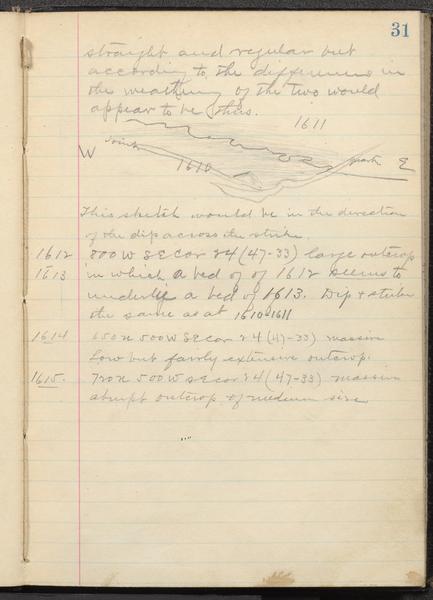 31
straight and regular but
according to the differences in
the weathering of the two would
appear to be thus.
1611
W 1610 E
This sketch would be in the direction
of the dip across the strike.
1612 800 W SE cor 24 (47-33) large outcrop
1613 in which a bed of of 1612 seems to
underlie a bed of 1613. Dip & strike
the same as at 1610-1611
1614 650 N 500 W SE cor 24 (47-33) massive
low but fairly extensive outcrop.
1615. 720 N 500 W SE cor 24 (47-33) massive
abrupt outcrop of medium size